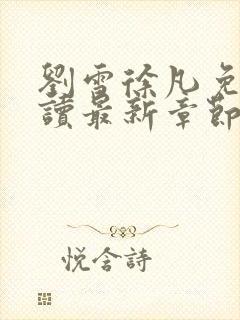 劉雪徐凡免
讀最新章節
悦含詩